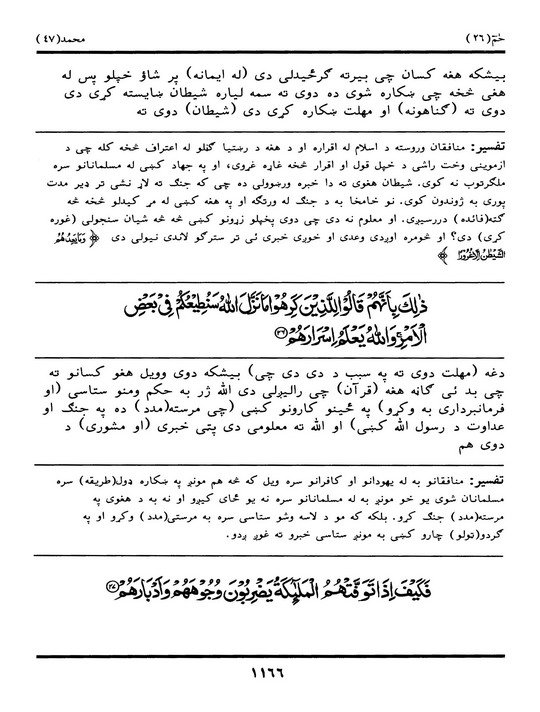 حٰمٓ(٢٦)
محمد(٤٧)
بیشکه هغه کسان چی بیرته ګرځیدلی دی (له ایمانه) پر شاؤ خپلو پس له
هغی څخه چی ښکاره شوی ده دوی ته سمه لیاره شیطان ښایسته کړی دی
دوی ته (ګناهونه) او مهلت ښکاره کړی دی (شیطان) دوی ته
تفسیر: منافقان وروسته د اسلام له اقراره او د هغه د رښتیا ګڼلو له اعتراف څخه کله چی د
ازموینی وخت راشی د خپل قول او اقرار څخه غاړه غړوی، او په جهاد کښی له مسلمانانو سره
ملګرتوب نه کوی. شیطان هغوی ته دا خبره ورښوولی ده چی که جنګ ته لاړ نشی تر ډیر مدت
پوری به ژوندون کوی. نو خامخا به د جنګ له ورتګه او په هغه کښی له مړ کیدلو څخه څه
ګټه(فائده) دررسیږی. او معلوم نه دی چی دوی پخپلو زړونو کښی څه څه شیان سنجولی (غوره
کړی) دی؟ او څومره اوږدی وعدی او خوږی خبری ئی تر سترګو لاندی نیولی دی ﴿وَمَا يَعِدُهُمُ
الشَّيْطٰنُ اِلَّا غُرُوْرًا﴾
ذٰلِكَ بِاَنَّهُمْ قَالُوْا لِلَّذِيْنَ كَرِهُوْا مَا نَزَّلَ اللهُ سَنُطِيْعُكُمْ فِيْ بَعْضِ
الْاَمْرِ ۚ وَاللهُ يَعْلَمُ اِسْرَارَهُمْ ﴿٢٦﴾
دغه (مهلت دوی ته په سبب د دی دی چی) بیشکه دوی وویل هغو کسانو ته
چی بد ئی ګاڼه هغه (قرآن) چی رالیږلی دی الله ژر به حکم ومنو ستاسی (او
فرمانبرداری به وکړو) په ځینو کارونو کښی (چی مرسته(مدد) ده په جنګ او
عداوت د رسول الله کښی) او الله ته معلومی دی پټی خبری (او مشوری) د
دوی هم
تفسیر: منافقانو به له یهودانو او کافرانو سره ویل که څه هم مونږ په ښکاره ډول(طریقه) سره
مسلمانان شوی یو خو مونږ به له مسلمانانو سره نه یو ځای کیږو او نه به د هغوی په
مرسته(مدد) جنګ کړو. بلکه که مو د لاسه وشو ستاسی سره به مرستی(مدد) وکړو او په
ګردو(ټولو) چارو کښی به مونږ ستاسی خبرو ته غوږ ږدو.
فَكَيْفَ اِذَا تَوَفَّتْهُمُ الْمَلٰٓئِكَةُ يَضْرِبُوْنَ وُجُوْهَهُمْ وَاَدْبَارَهُمْ ﴿٢٧﴾
١١٦٦